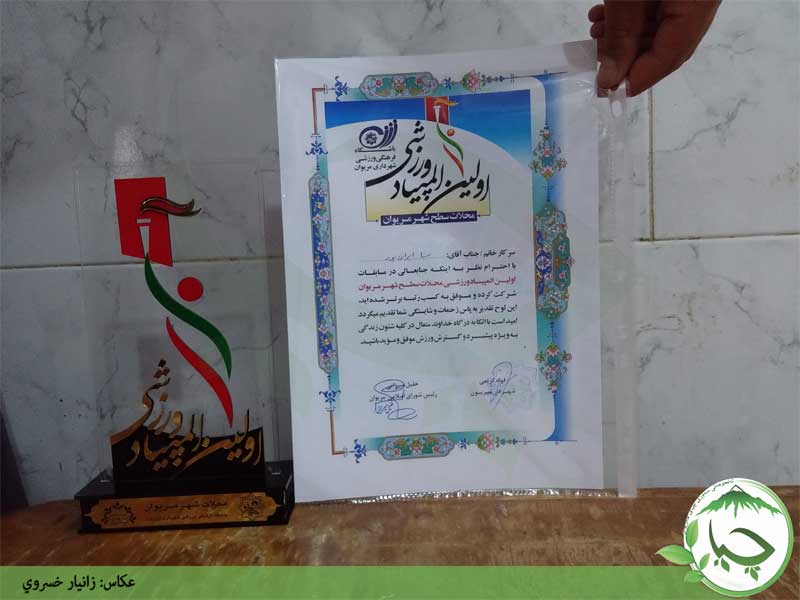 باشگاه
فرهنگی ورزشی
شهرداری مریوان
اولین المپیاد ورزشی
محلات سطح شهر مریوان
سرکار خانم / جناب آقای:
با احترام نظر به اینکه جنابعالی در مسابقات
اولین المپیاد ورزشی محلات سطح شهر مریوان
شرکت کرده و موفق به کسب رتبه برتر شده اید،
این لوح تقدیر به پاس زحمات و شایستگی شما تقدیم میگردد.
امید است با اتکا به درگاه خداوند متعال در کلیه شئون زندگی
به ویژه پیشبرد و گسترش ورزش موفق و مؤید باشید.
فواد کریمی
خلیل
رئیس شورای اسلامی مریوان
اولین المپیاد ورزشی
محلات شهر مریوان
چیا
عکاس: زانیار خسروي